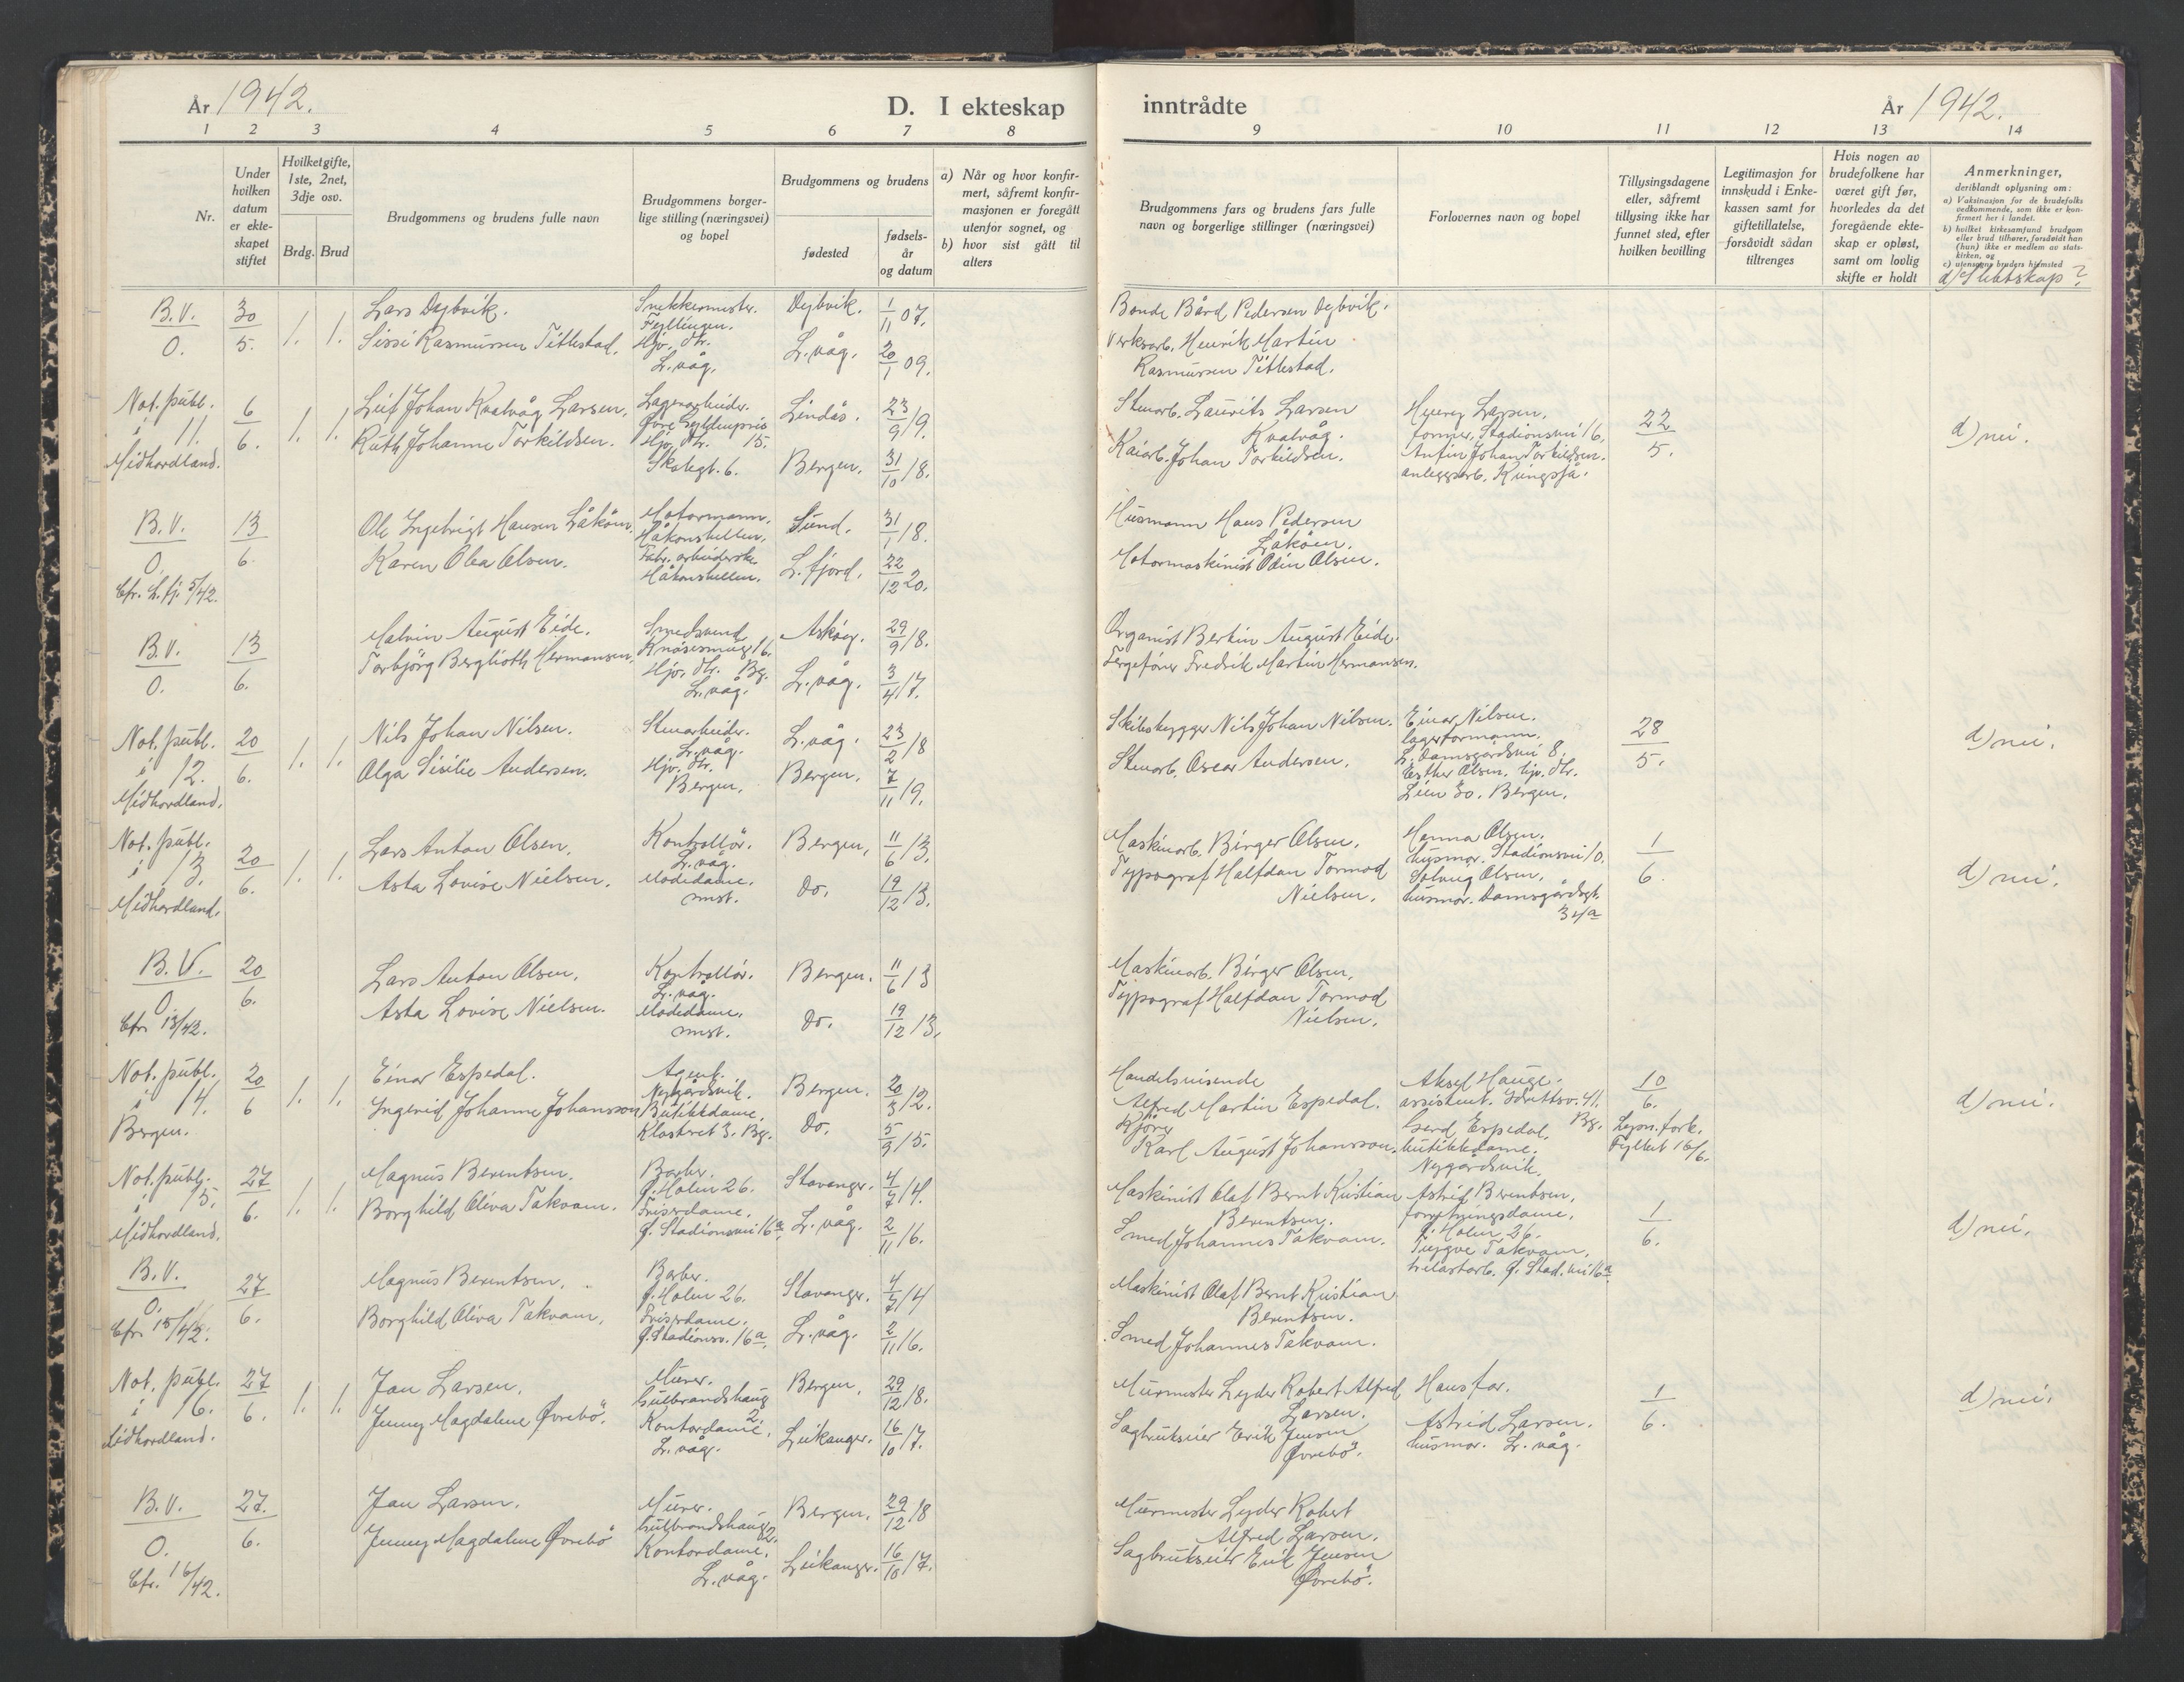 År 1942.
D. I ekteskap
inntrådte
År 1942.
1 2 3 4 5 6 7 8
9 10 11 12 13 14
Nr.
Under hvilken datum er ekteskapet stiftet
Hvilket gifte, 1ste, 2net, 3dje osv.
Brdg. Brud
Brudgommens og brudens fulle navn
Brudgommens borgerlige stilling (næringsvei) og bopel
Brudgommens og brudens
fødested
fødselsår og datum
a) Når og hvor konfirmert, såfremt konfirmasjonen er foregått utenfor sognet, og
b) hvor sist gått til alters
Brudgommens fars og brudens fars fulle navn og borgerlige stillinger (næringsvei)
Forlovernes navn og bopel
Tillysingsdagene eller, såfremt tillysing ikke har funnet sted, efter hvilken bevilling
Legitimasjon for innskudd i Enkekassen samt for giftetillatelse, forsåvidt sådan tiltrenges
Hvis nogen av brudefolkene har været gift før, hvorledes da det foregående ekteskap er opløst, samt om lovlig skifte er holdt
Anmerkninger,
deriblandt oplysning om:
a) Vaksinasjon for de brudefolks vedkommende, som ikke er konfirmert her i landet.
b) hvilket kirkesamfund brudgom eller brud tilhører, forsåvidt han (hun) ikke er medlem av statskirken, og
c) utensogns bruders hjemsted
d) Slektskap?
B.V. 30/5. 1. 1. Lars Dejbvik. Snekkermester. Dejbvik. 1/11 07. Bonde Bård Pedersen Dejbvik.
Fjellingen.
O. Sissi Rasmussen Tittlestad. Hjv. dtr. L.våg. 20/1 09. Verksarb. Henrik Martin
L.våg. Rasmussen Tittlestad.
Not. publ. 6/6. 1. 1. Leif Johan Kvalvåg Larsen. Lagerarbeider. Lindås. 23/9 19. Stenarb. Laurits Larsen
i 11. Kvalvåg. 22/5. d) nei.
Midhordland. Ruth Johanne Torkildsen. Hjv. dtr. 15. Bergen. 31/10 18. Kaiarb. Johan Torkildsen.
Skolegt. 6. Stadionsvei 16.
B.V. 13/6. Ole Ingebrigt Hansen Låkøen. Motormann. Sund. 31/1 18. Husmann Hans Pedersen
O. Håkonshellen. Låkøen.
Cfr. L.fj. 5/42. Karen Olea Olsen. Fabr. arbeiderske L.fjord. 22/12 20. Motormaskinist Odin Olsen.
Håkonshellen.
B.V. 13/6. Malvin August Eide. Smedsvend Askøy. 29/9 18. Organist Bertin August Eide.
O. Torbjörg Berglioth Hermansen. Hjv. dtr. Bg. L.våg. 3/4 17. Fergefører Fredrik Martin Hermansen.
L.våg.
Not. publ. 20/6. 1. 1. Nils Johan Nilsen. Stenarbeider. L.våg. 23/2 18 Skibsbygger Nils Johan Nilsen. Einar Nilsen. 28/5. d) nei.
i 12. L.våg. lagerformann.
Midhordland. Olga Sisilie Andersen. Hjv. dtr. Bergen. 7/11 19. Stenarb. Oscar Andersen. L. Damsgårdsvei 8.
Bergen. Esther Olsen. hjv. dtr.
Lien 30. Bergen.
Not. publ. 20/6. 1. 1. Lars Anton Olsen. Kontrollör. Bergen. 11/6 13. Maskinarb. Birger Olsen. Hanna Olsen. 1/6. d) nei.
i 13. L.våg. husmor. Stadionsvei 10.
Midhordland. Asta Lovise Nielsen. Modedame. do. 19/12 13. Typograf Halfdan Tormod Solveig Olsen.
smst. Nielsen. husmor. Damsgårdsgt.
34a
B.V. 20/6. Lars Anton Olsen. Kontrollör. Bergen. 11/6 13 Maskinarb. Birger Olsen.
O. L.våg.
Cfr. 13/42. Asta Lovise Nielsen. Modedame. do. 19/12 13. Typograf Halfdan Tormod
smst. Nielsen.
Not. publ. 20/6 1. 1. Einar Espedal. Agent. Bergen. 20/3 12. Handelsreisende Aksel Hauge. 10/6. d) nei.
i 14. Nygårdsvik. Alfred Martin Espedal. assistent. Idrettsv. 41. Bg.
Bergen. Ingerid Johanne Johansson Butikkdame. do. 5/9 15. Kjører Gerd Espedal. Lysn. fork.
Klosteret 3. Bg. Karl August Johansson. butikkdame. Fylket 16/6.
Nygårdsvik.
Not. publ. 27/6. 1. 1. Magnus Berentsen. Barber. Stavanger. 4/7 14. Maskinist Olaf Bernt Kristian Astrid Berentsen. 1/6. d) nei.
i 15. Ø. Holen 26. Berentsen. forretningsdame.
Midhordland. Borghild Oliva Takvam. Friserdame. L.våg. 2/11 16. Smed Johannes Takvam. Ø. Holen 26.
Ø. Stadionsvei 16a. Trygve Takvam.
Ø. Stad. vei 16a
B.V. 27/6. Magnus Berentsen. Barber. Stavanger. 4/7 14 Maskinist Olaf Bernt Kristian
O. Ø. Holen 26. Berentsen.
Cfr. 15/42. Borghild Oliva Takvam. Friserdame. L.våg. 2/11 16. Smed Johannes Takvam.
Ø. Stadionsv. 16a.
Not. publ. 27/6. 1. 1. Jan Larsen. Murer. Bergen. 29/12 18. Murmester Lyder Robert Alfred Hans far. 1/6. d) nei.
i 16. Gulbrandshaug 2. Larsen.
Midhordland. Jenny Magdalene Øvrebö. Kontordame. Leikanger. 16/10 17. Sagbrukseier Erik Jensen Astrid Larsen.
L.våg. Øvrebö. husmor. L.våg.
B.V. 27/6. Jan Larsen. Murer. Bergen. 29/12 18 Murmester Lyder Robert
O. Gulbrandshaug 2. Alfred Larsen.
Cfr. 16/42. Jenny Magdalene Øvrebö Kontordame. Leikanger. 16/10 17. Sagbrukseier Erik Jensen
L.våg. Øvrebö.